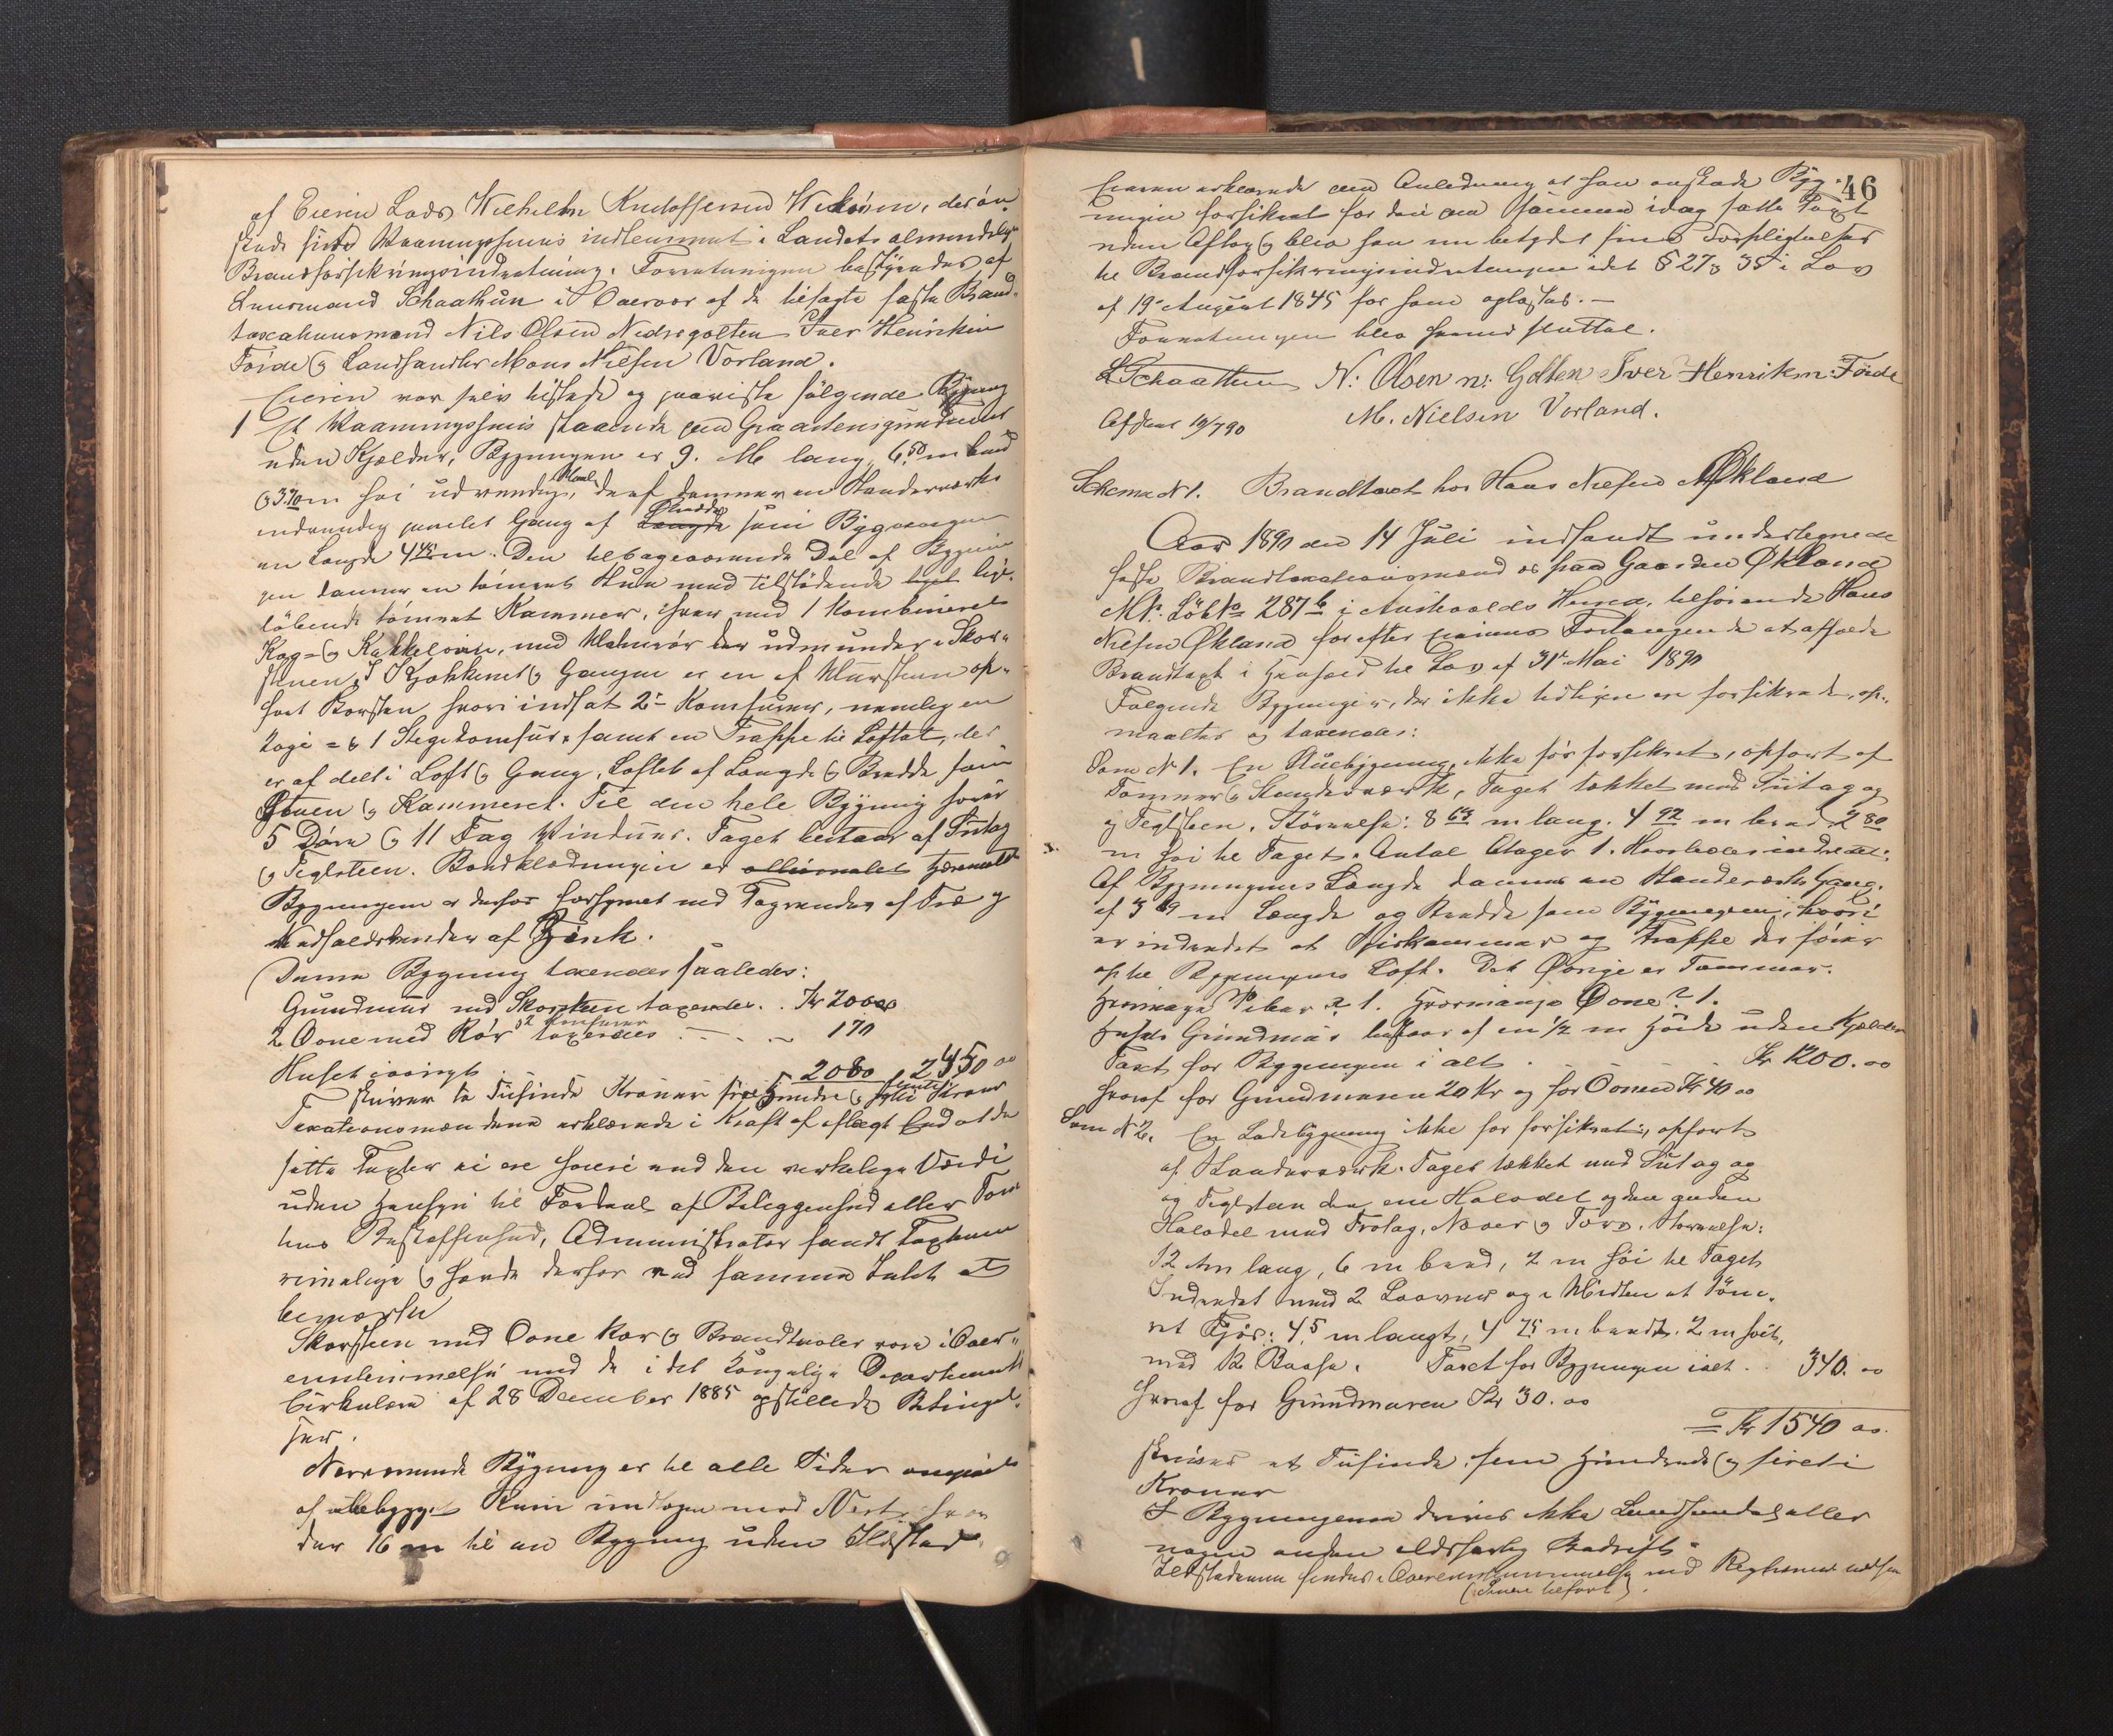 af Eieren Lods Wilhelm Knutoffersen Wikøren, der øn-
skede sit Vaaningshuus indlemmet i Landets almindelige
Brandforsikringsindretning. Forretningen bestyredes af
Lensmand Schaathun i Overvær af de tilsagte faste Brand-
taxationsmænd Nils Olsen Nedregolten Iver Henriksen
Førde og Landhandler Mons Nielsen Vorland.
Eieren var selv tilstede og paaviste følgende Bygning
1 Et Vaaningshuus staaende paa Graasteensgrundmur
uden Kjælder, Bygningen er 9. M lang, 6,50 m bred
og 3,70 m høi udvendig Maal, deraf danner en Standerværks
indvendig panelet Gang af Længde Bredde som Bygningen
en Længde 4,45 m. Den tilbageværende Del af Bygnin-
gen danner en tømret Stue med tilstødende lige-
løbende tømret Kammer, hver med 1 kombineret
Kog- og Kakkelovn, med udmunder i Skor-
stenen. I Kjøkkenet og Gangen er en af Mursteen op-
ført Skorsten, hvori indsat 2de Komfurer, nemlig en
Koge- & 1 Stegekomfur, samt en Trappe til Loftet, der
er afdelt i Loft og Gang, Loftet af Længde og Bredde som
Stuen og Kammeret. Til den hele Bygning hører
5 Døre og 11 Fag Vinduer. Taget bestaar af Sutag
og Teglsteen. Bordklædningen er oliemalet
Bygningen er derfor forsynet med Tagrender af Træ og
Nedfaldsrender af Zink.
Denne Bygning taxeredes saaledes:
Grundmur med Skorsten taxeredes . . Kr 200,00
2 Ovne med Rør & 2 Komfurer taxeredes - - - 170
Huset iøvrigt 2080 2450 00
skriver to Tusinde Kroner fire Hundre og femti Kroner
Taxationsmændene erklærede i Kraft af aflagt Eed at de
satte Taxter ei ere høiere end den virkelige Værdi
uden Hensyn til Fordeel af Beliggenhed eller Tom-
tens Beskaffenhed, Administrator fandt Taxterne
rimelige og havde derfor ved samme Intet at
bemærke
Skorsteen med Ovne Rør og Brandmure vare i Over-
ensstemmelse med de i det Kongelige Departements
Cirkulære af 28 December 1885 opstillede Betingel-
ser.
Nærværende Bygning er til alle Sider omgivet
af ubebygget Rum undtagen mod Vest, hvor
der 16 m til en Bygning uden Ildsted.
46
Eieren erklærede paa Anledning at han ønskede Byg-
ningen forsikret for den paa samme idag satte Taxt
uden Aftag og blev han nu betydet sine Forpligtelser
til Brandforsikringsindretningen idet § 27 og 35 i Lov
af 19 August 1845 for ham oplæstes. —
Forretningen blev hermed sluttet.
L Schaathun N: Olsen n: Golten Iver Henriksn: Førde
Afsent 19/7 90 M. Nielsen Vorland.
Schema N 1. Brandtaxt hos Hans Nielsen Økland
Aar 1890 den 14 Juli indfandt undertegnede
faste Brandtaxationsmænd os paa Gaarden Økland
M.N. LøbNo 287 b i Austvolds Herred, tilhørende Hans
Nielsen Økland for efter Eierens Forlangende at afholde
Brandtaxt i Henhold til Lov af 31te Mai 1890
Følgende Bygninger, der ikke tidligere ere forsikrede, op-
maaltes og taxeredes:
Som N 1. En Stuebygning, ikke før forsikret, opført af
Tømmer og Standerværk, Taget tækket med Sutag og
og Teglsteen. Størrelse: 8 63 m lang. 4 92 m bred 2 80
m høi til Taget. Antal Etager 1. Hvorledes indredet:
Af Bygningens Længde dannes en Standerværks Gang
af 3 69 m Længde og Bredde som Bygningen, hvori
er indredet et Spiskammer og Trappe der fører
op til Bygningens Loft. Det Øvrige er Tømmer.
Hvormange Piber? 1. Hvormange Ovne? 1.
Husets Grundmur bestaar af en 1/2 m Høide uden Kjælder
Taxt for Bygningen i alt . - . Kr 1200.00
hvoraf for Grundmuren 20 Kr og for Ovnen Kr 40 00
Som N 2. En Ladebygning ikke før forsikret, opført
af Standerværk. Taget tækket med Sutag og
og Teglsteen den ene Halvdel og den anden
Halvdel med Trotag, Næver og Torv. Størrelse:
12 m lang, 6 m bred, 2 m høi til Taget
Indredet med 2 Laaver og i Midten et tøm-
ret Fjøs: 4,5 m langt, 4 75 m bredt. 2 m høit,
med 12 Baase. Taxt for Bygningen ialt . . 340. 00
hvoraf for Grundmuren Kr 30. 00
= Kr 1540 00.
skriver et Tusinde fem Hundrede og fireti
Kroner
I Bygningerne drives ikke Landhandel eller
nogen anden ildsfarlig Bedrift.
Ildstederne findes i Overensstemmelse med Reglerne